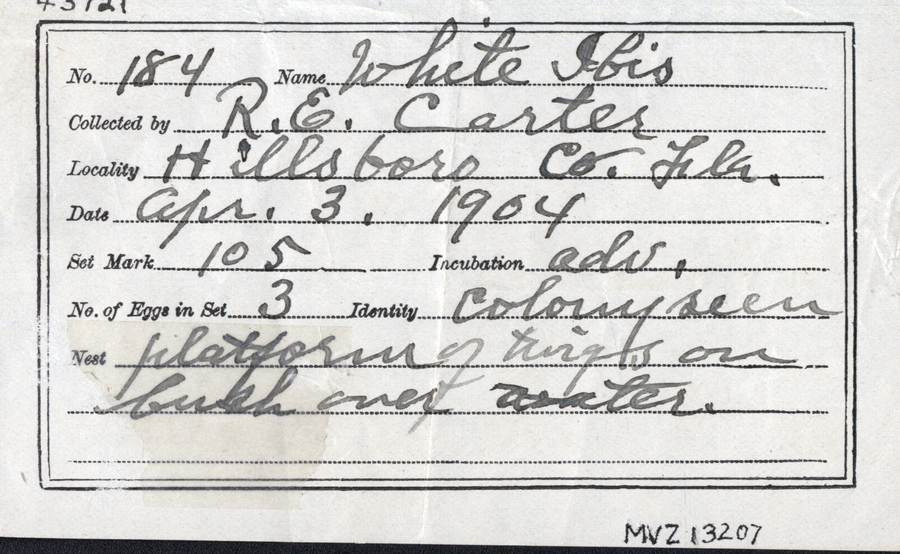 No. 184 Name White Ibis
Collected by R. E. Carter
Locality Hillsboro Co. Fla.
Date Apr. 3. 1904
Set Mark 105 Incubation adv.
No. of Eggs in Set 3 Identity Colony seen
Nest platform of twigs on
bush over water.
MVZ 13207